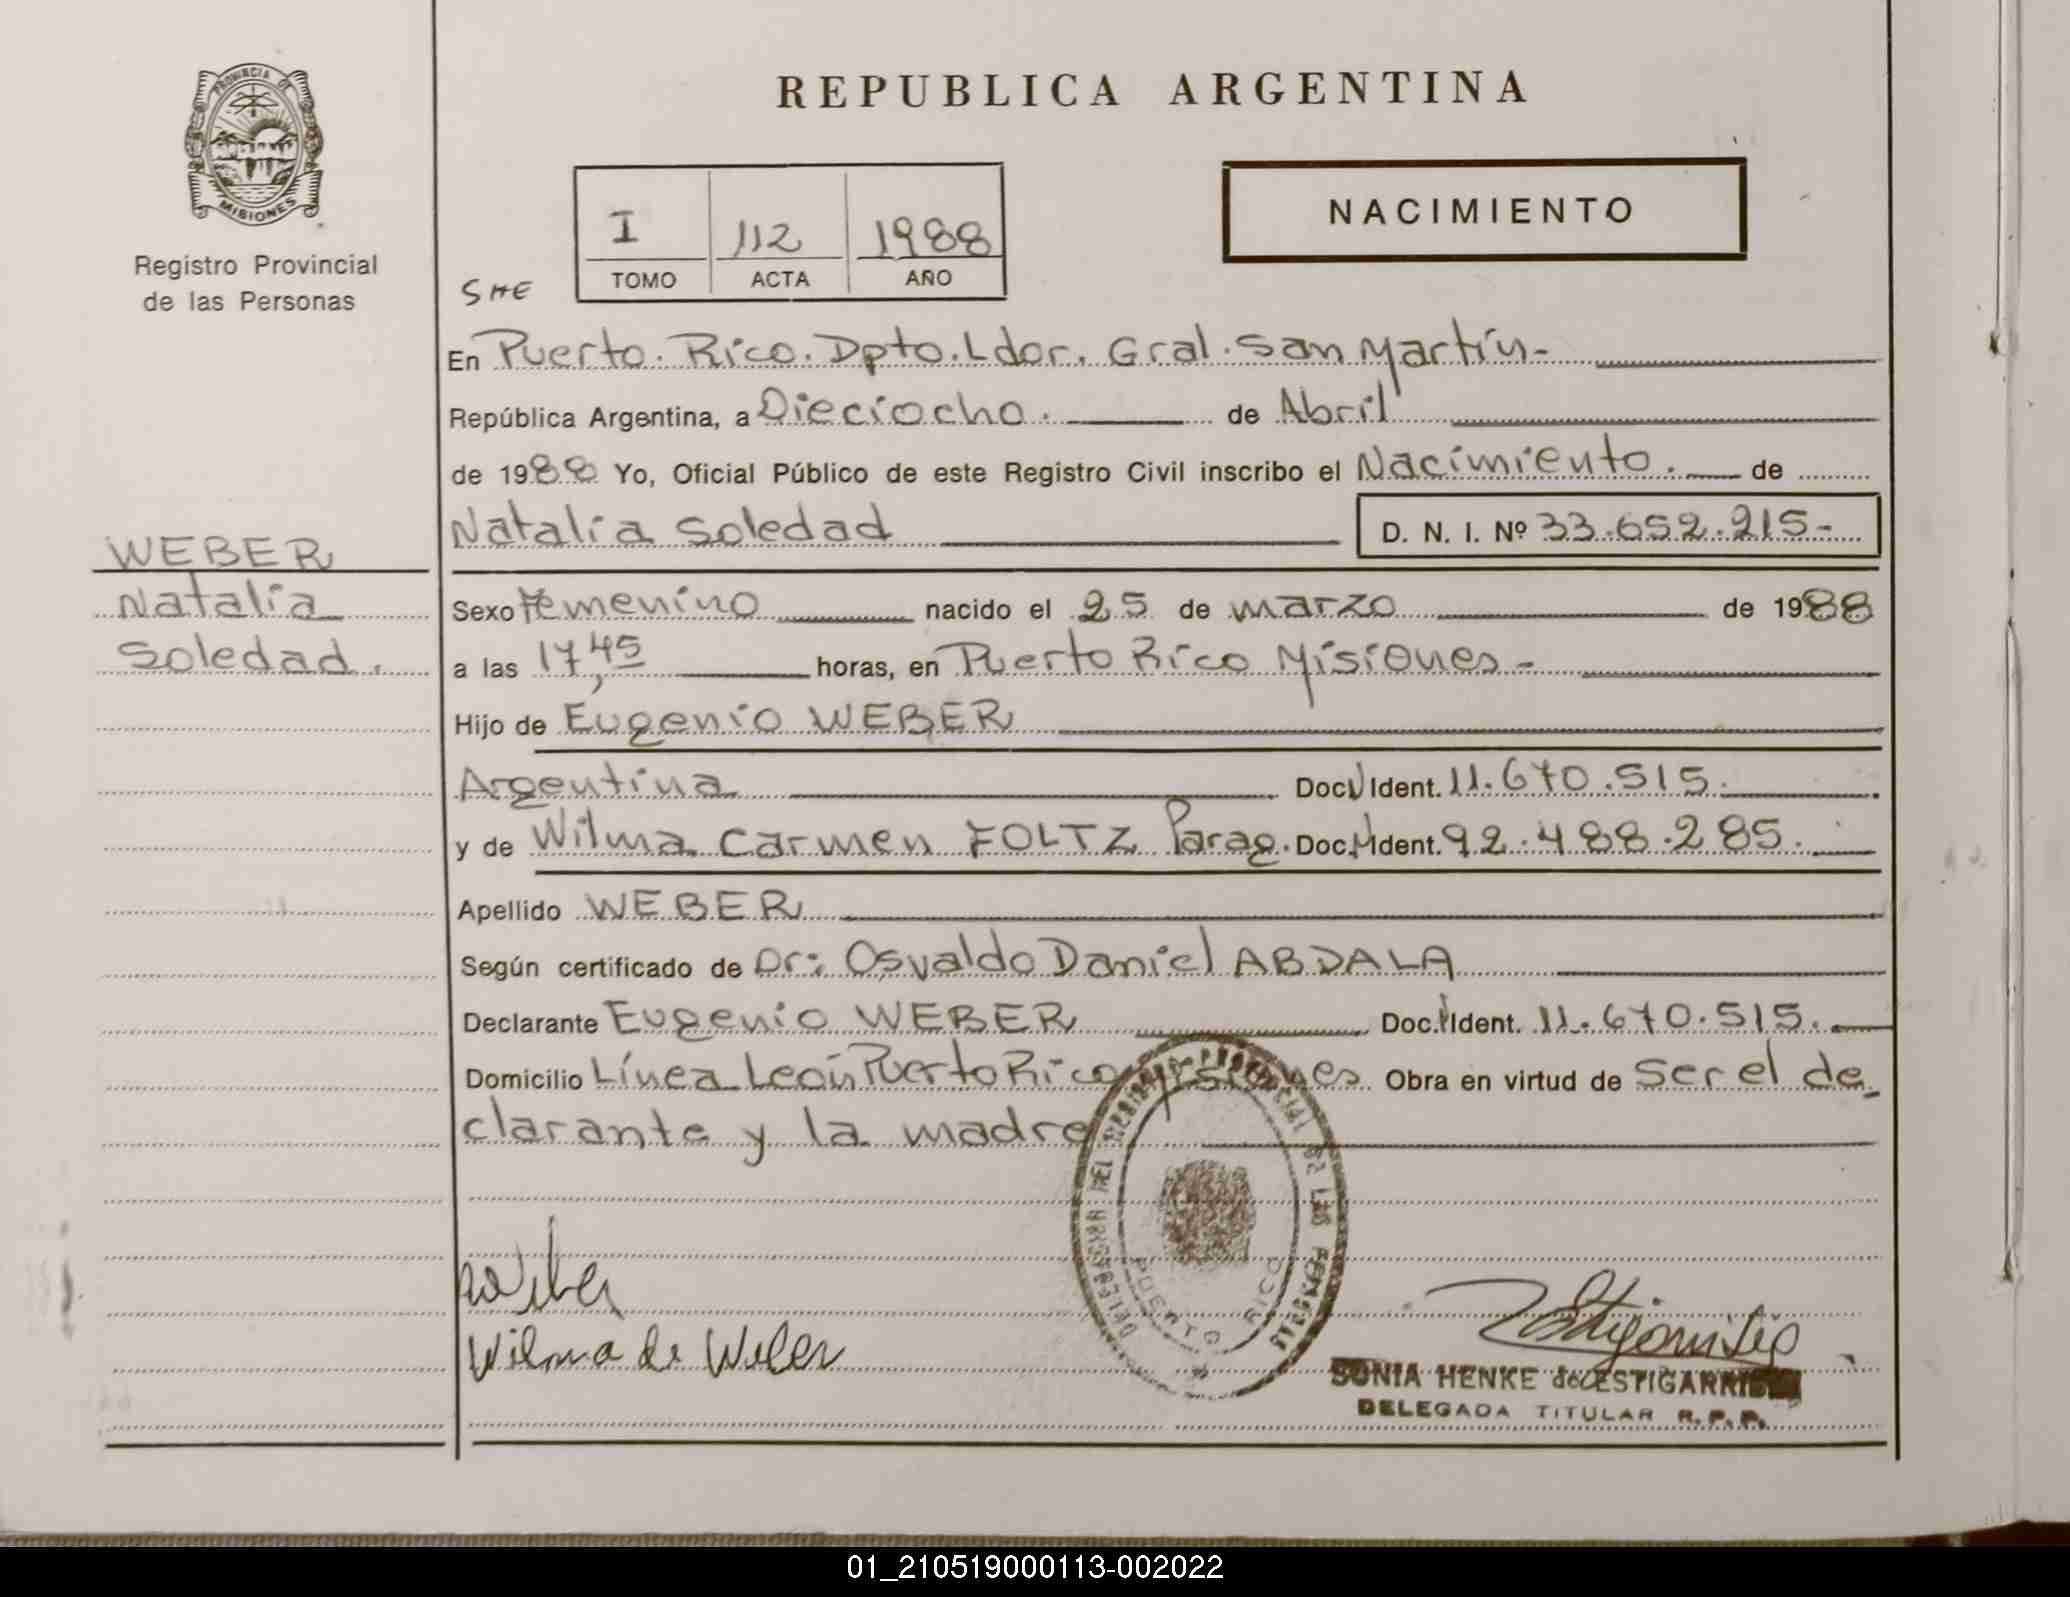 PROVINCIA DE
MISIONES
Registro Provincial
de las Personas
REPUBLICA ARGENTINA
I 112 1988
TOMO ACTA AÑO
NACIMIENTO
SHE
En Puerto. Rico. Dpto. Ldor. Gral. San Martín-
República Argentina, a Dieciocho. de Abril
de 1988 Yo, Oficial Público de este Registro Civil inscribo el Nacimiento. de
Natalia Soledad D. N. I. Nº 33.652.215-
WEBER
Natalia
Soledad.
Sexo Femenino nacido el 25 de marzo de 1988
a las 17,45 horas, en Puerto Rico Misiones-
Hijo de Eugenio WEBER
Argentina Doc. Ident. 11.670.515.
y de Wilma Carmen FOLTZ Parag. Doc. Ident. 92.488.285.
Apellido WEBER
Según certificado de Dr: Osvaldo Daniel ABDALA
Declarante Eugenio WEBER Doc. Ident. 11.670.515.
Domicilio Línea León Puerto Rico Misiones Obra en virtud de ser el de
clarante y la madre
DELEGACION DEL REGISTRO PROVINCIAL DE LAS PERSONAS
PUERTO RICO
Weber
Wilma de Weber
SONIA HENKE de ESTIGARRIBIA
DELEGADA TITULAR R.P.P.
01_210519000113-002022